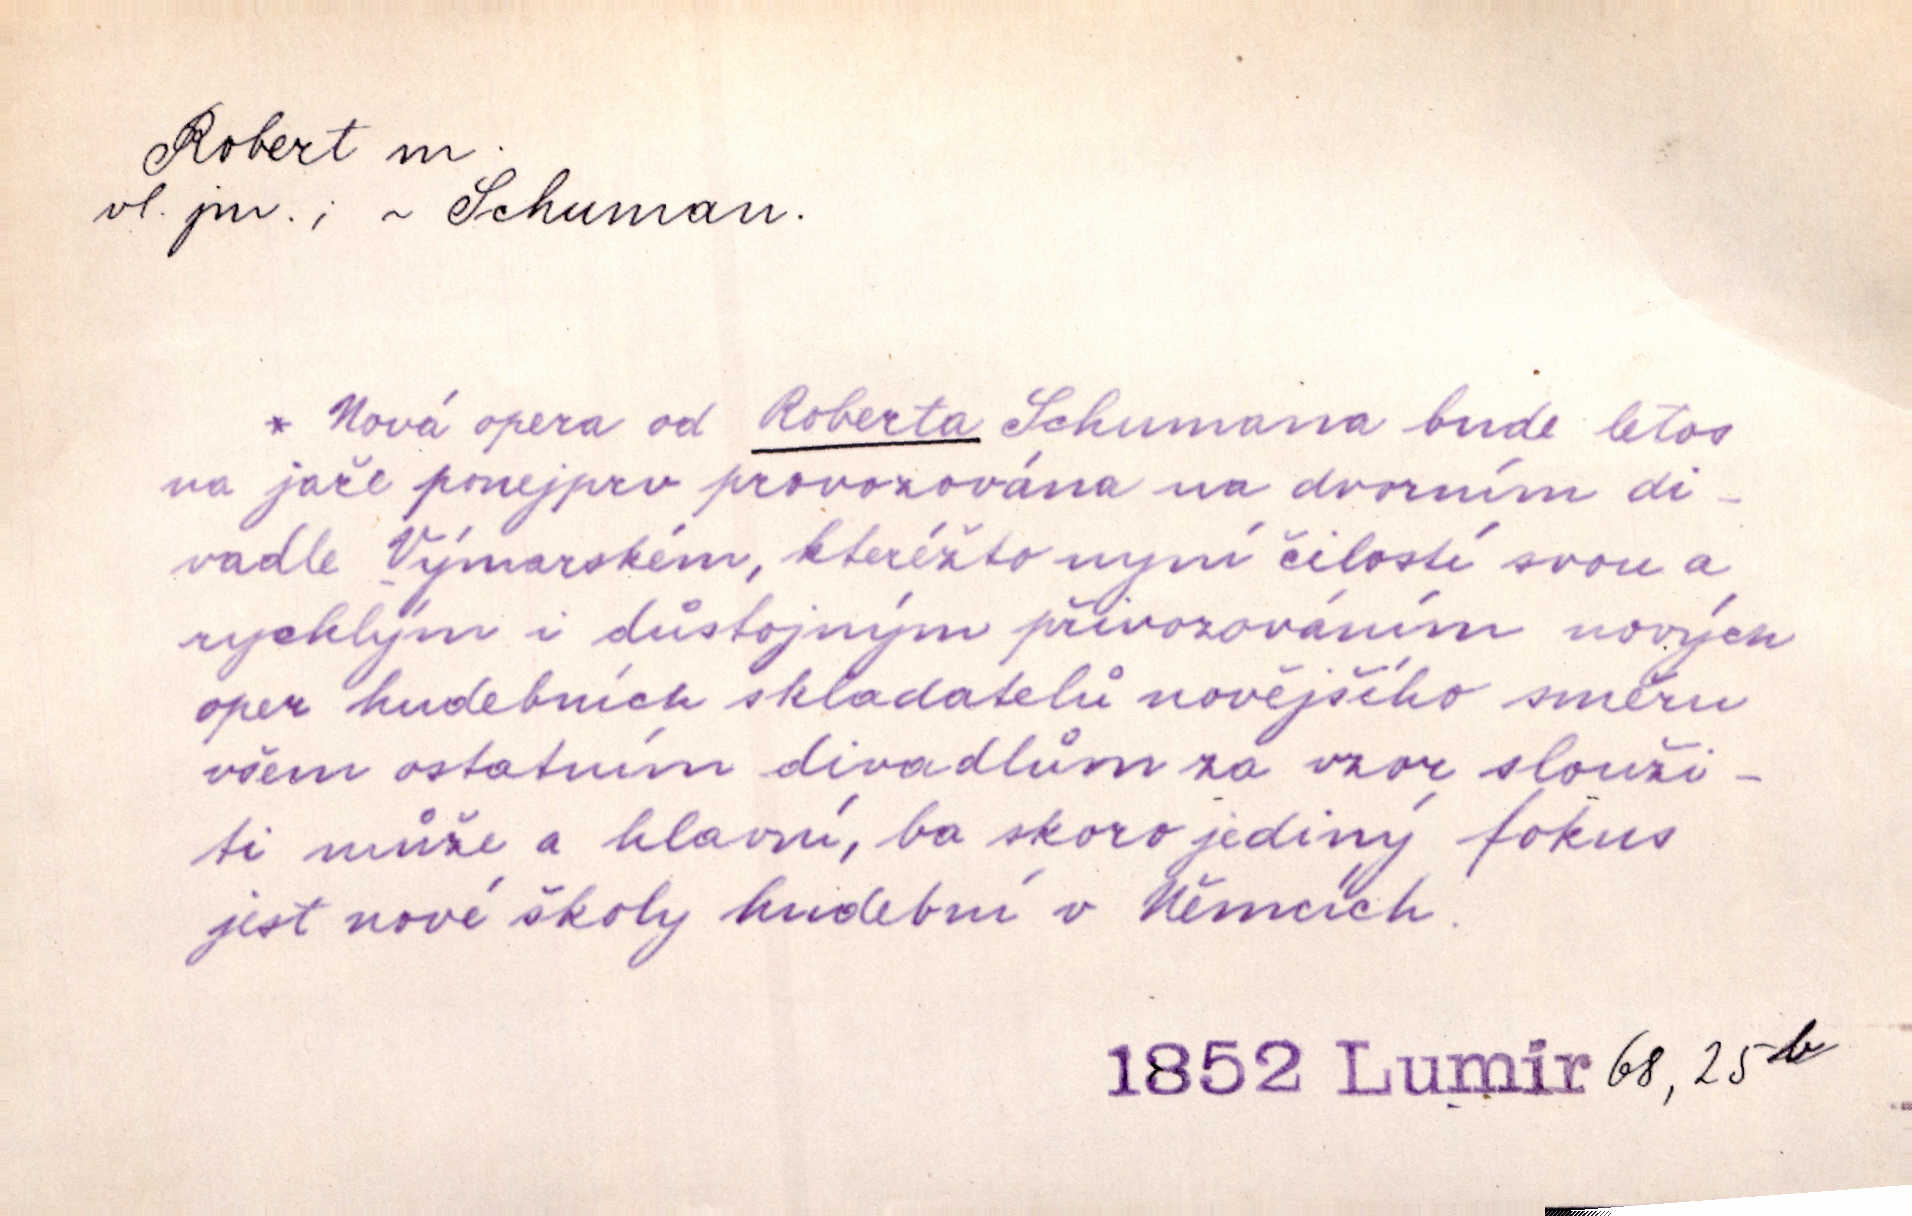 Robert m.
vl. jm.; ~ Schuman.
* Nová opera od Roberta Schumana bude letos
na jaře ponejprv provozována na dvorním di-
vadle Výmarském, kteréžto nyní čilostí svou a
rychlým i důstojným přivozováním nových
oper hudebních skladatelů novějšího směru
všem ostatním divadlům za vzor slouži-
ti může a hlavní, ba skoro jediný fokus
jest nové školy hudební v Němcích.
1852 Lumír 68, 25 b